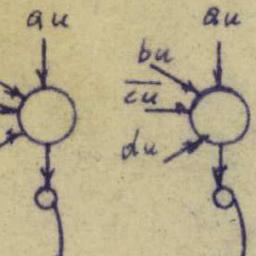 au au
bu
c̅u̅
du